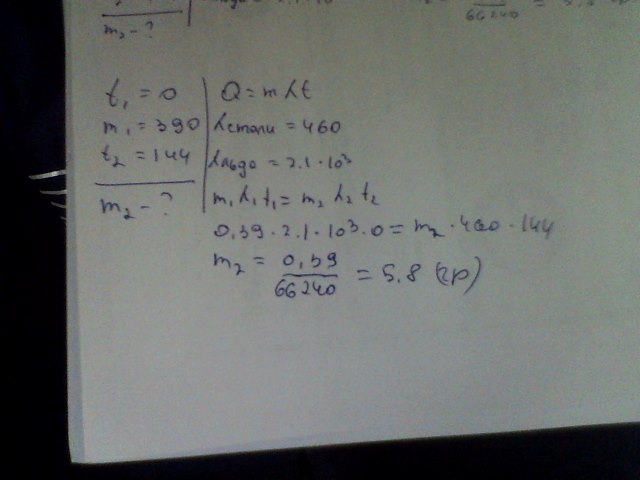 m₂ - ?
66240
t₁ = 0
m₁ = 390
t₂ = 144
m₂ - ?
Q = m λ t
λстали = 460
λльда = 2.1 · 10³
m₁ λ₁ t₁ = m₂ λ₂ t₂
0,39 · 2.1 · 10³ · 0 = m₂ · 460 · 144
m₂ = 0,39 / 66240 = 5.8 (гр)